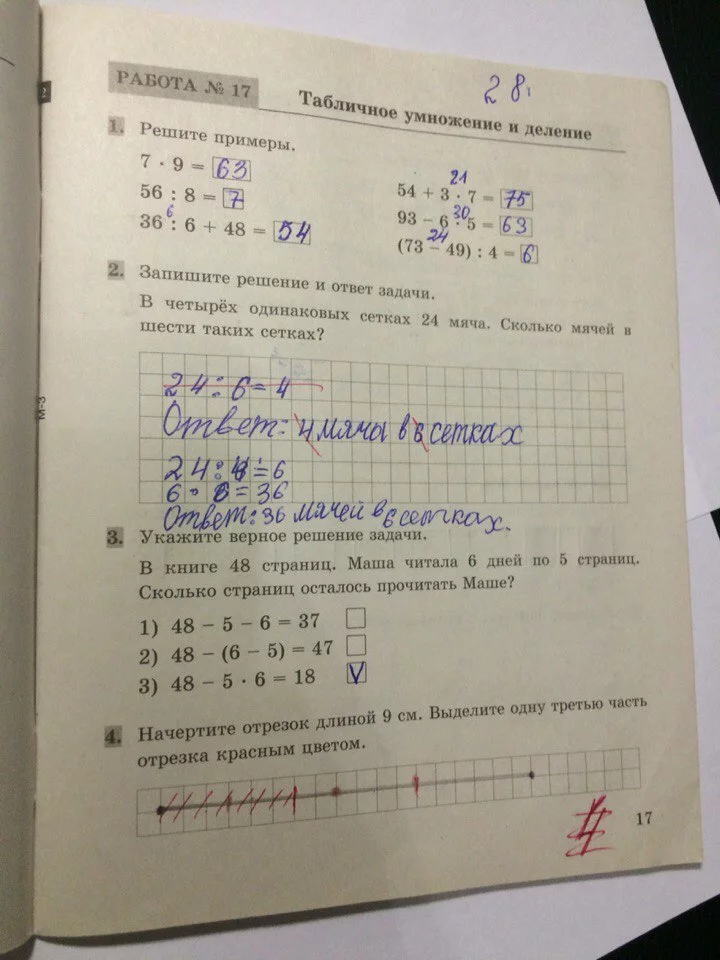 2 8
РАБОТА № 17
Табличное умножение и деление
1. Решите примеры.
7 · 9 = 63
56 : 8 = 7
6
36 : 6 + 48 = 54
21
54 + 3 · 7 = 75
30
93 – 6 · 5 = 63
24
(73 – 49) : 4 = 6
2. Запишите решение и ответ задачи.
В четырёх одинаковых сетках 24 мяча. Сколько мячей в
шести таких сетках?
24 : 6 = 4
Ответ: 4 мяча в 6 сетках
24 : 4 = 6
6 · 6 = 36
Ответ: 36 мячей в 6 сетках.
3. Укажите верное решение задачи.
В книге 48 страниц. Маша читала 6 дней по 5 страниц.
Сколько страниц осталось прочитать Маше?
1) 48 – 5 – 6 = 37
2) 48 – (6 – 5) = 47
3) 48 – 5 · 6 = 18 V
4. Начертите отрезок длиной 9 см. Выделите одну третью часть
отрезка красным цветом.
4
17
М-3
2